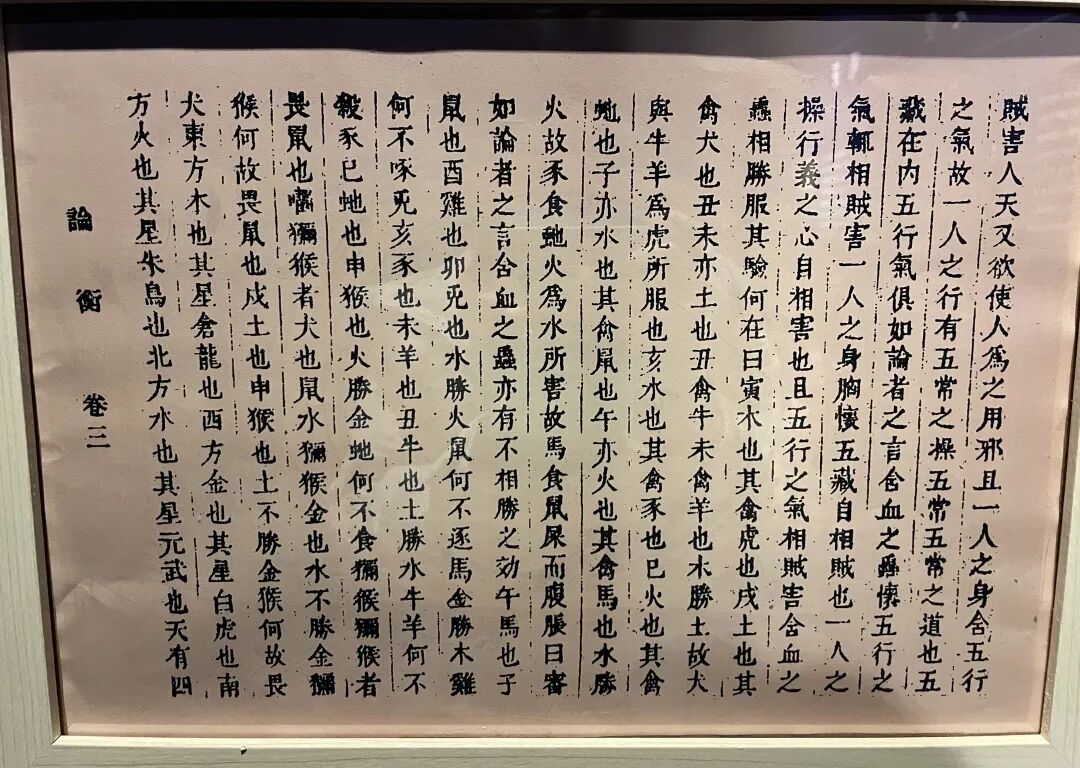 賊害人天又欲使人爲之用邪且一人之身含五行
之氣故一人之行有五常之操五常五常之道也五
藏在内五行氣俱如論者之言含血之蟲懷五行之
氣輒相賊害一人之身胸懷五藏自相賊也一人之
操行義之心自相害也且五行之氣相賊害含血之
蟲相勝服其驗何在曰寅木也其禽虎也戌土也其
禽犬也丑未亦土也丑禽牛未禽羊也木勝土故犬
與牛羊爲虎所服也亥水也其禽豕也巳火也其禽
虵也子亦水也其禽鼠也午亦火也其禽馬也水勝
火故豕食虵火爲水所害故馬食鼠屎而腹脹曰審
如論者之言含血之蟲亦有不相勝之効午馬也子
鼠也酉雞也卯兎也水勝火鼠何不逐馬金勝木雞
何不啄兎亥豕也未羊也丑牛也土勝水牛羊何不
殺豕巳虵也申猴也火勝金虵何不食獼猴獼猴者
畏鼠也囓獼猴者犬也鼠水獼猴金也水不勝金獼
猴何故畏鼠也戌土也申猴也土不勝金猴何故畏
犬東方木也其星倉龍也西方金也其星白虎也南
方火也其星朱鳥也北方水也其星元武也天有四
論衡 卷三